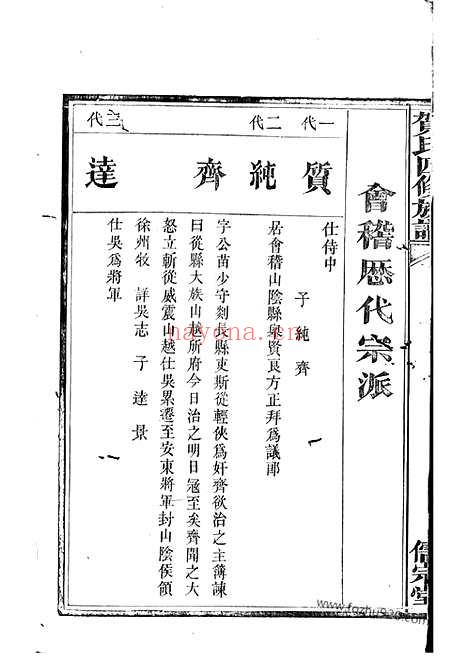 賀氏四修族譜
儒宗堂
會稽歷代宗派
一代
質
仕侍中
子純齊
二代
純
居會稽山陰縣舉賢良方正拜爲議郎
齊
字公苗少守剡長縣吏斯從輕俠爲奸齊欲治之主簿諫
曰從縣大族山越所府今日治之明日寇至矣齊聞之大
怒立斬從威震山越仕吳累遷至安東將軍封山陰侯領
徐州牧 詳吳志 子達景
三代
達
仕吳爲將軍
nayona.cn
www.fgzhu920.com